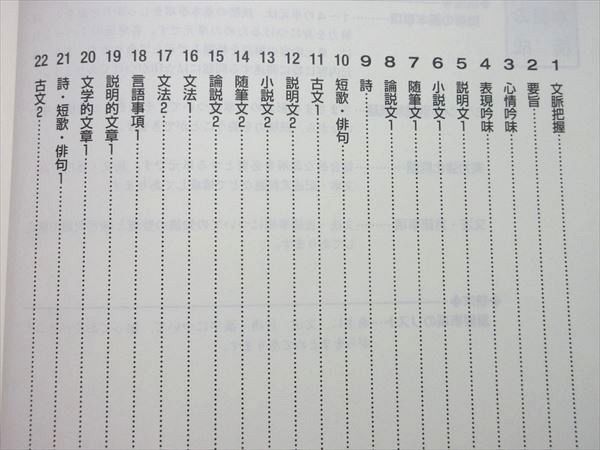 1 文脈把握
2 要旨
3 心情吟味
4 表現吟味
5 説明文1
6 小説文1
7 随筆文1
8 論説文1
9 詩
10 短歌・俳句
11 古文1
12 説明文2
13 小説文2
14 随筆文2
15 論説文2
16 文法1
17 文法2
18 言語事項1
19 説明的文章1
20 文学的文章1
21 詩・短歌・俳句1
22 古文2